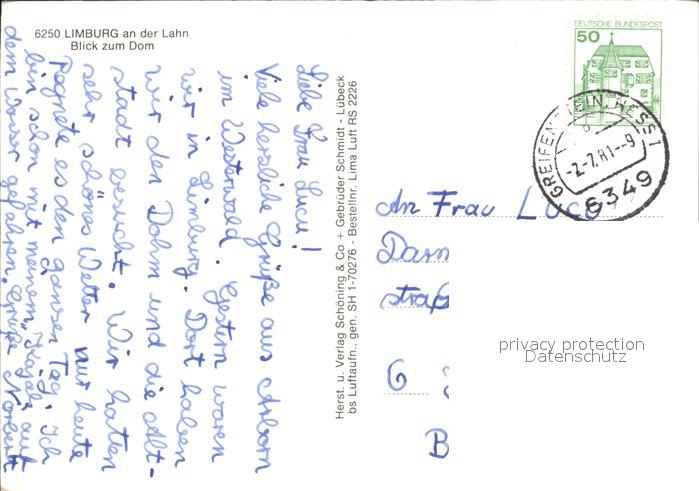 6250 LIMBURG an der Lahn
Blick zum Dom
Liebe Frau Lucu!
Viele herzliche Grüße aus Arborn
im Westerwald. Gestern waren
wir in Limburg. Dort haben
wir den Dohm und die Alt-
stadt besucht. Wir hatten
sehr schönes Wetter nur heute
Regnete es den ganzen Tag. Ich
bin schon mit meinem "Kajak" auf
dem Wasser gefahren. Grüße Norbert
Herst. u. Verlag Schöning & Co + Gebrüder Schmidt - Lübeck
bs Luftaufn., gen. SH 1-70276 - Bestellnr. Lima Luft RS 2226
DEUTSCHE BUNDESPOST
50
GREIFENSTEIN, HESS 1
b
-2.-7.81.--9
6349
An Frau
Darm
straß
6
B
privacy protection
Datenschutz